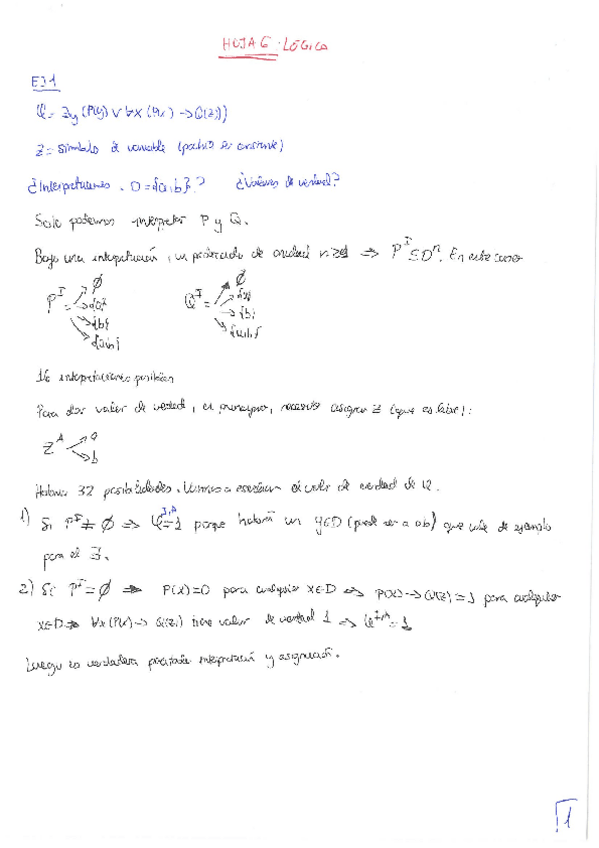 HOJA 6: LÓGICA
EJ1
φ = ∃y (P(y) ∨ ∀x (P(x) → Q(z)))
z = símbolo de variable (podría ser constante)
¿Interpretaciones, D={a,b}? ¿Valores de verdad?
Solo podemos interpretar P y Q.
Bajo una interpretación, un predicado de aridad n≥1 ⇒ P^I ⊆ D^n. En este caso
P^I = ∅ Q^I = ∅
{a} {a}
{b} {b}
{a,b} {a,b}
16 interpretaciones posibles
Para dar valor de verdad, en principio, necesito asignar z (que es libre):
z^A a
b
Habría 32 posibilidades. Vamos a el valor de verdad de φ.
1) Si P^I ≠ ∅ ⇒ φ^{I,A} = 1 porque habrá un y∈D (puede ser a o b) que vale de ejemplo
para el ∃.
2) Si P^I = ∅ ⇒ P(x)=0 para cualquier x∈D ⇒ P(x) → Q(z) = 1 para cualquier
x∈D ⇒ ∀x (P(x) → Q(z)) tiene valor de verdad 1 ⇒ φ^{I,A} = 1
Luego es verdadera interpretación y asignación.
1